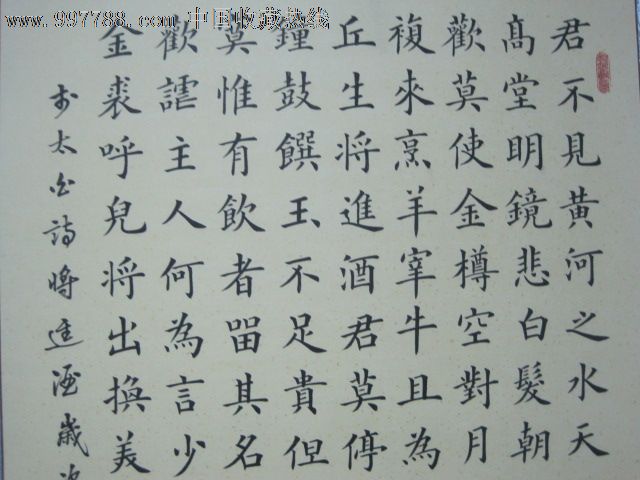 www.997788.com 中国收藏热线
君不見黃河之水天
髙堂明鏡悲白髮朝
歡莫使金樽空對月
複來烹羊宰牛且為
丘生将進酒君莫停
鐘鼓饌玉不足貴但
莫惟有飲者畱其名
歡謔主人何為言少
金裘呼兒将出換美
太白詩將進酒歲次